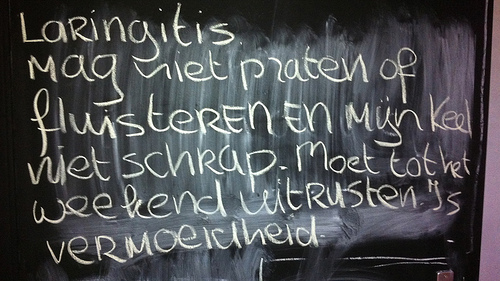 Laringitis.
Mag niet praten of
fluisteren en mijn keel
niet schrap. Moet tot het
weekend uitrusten. 's
vermoeidheid.